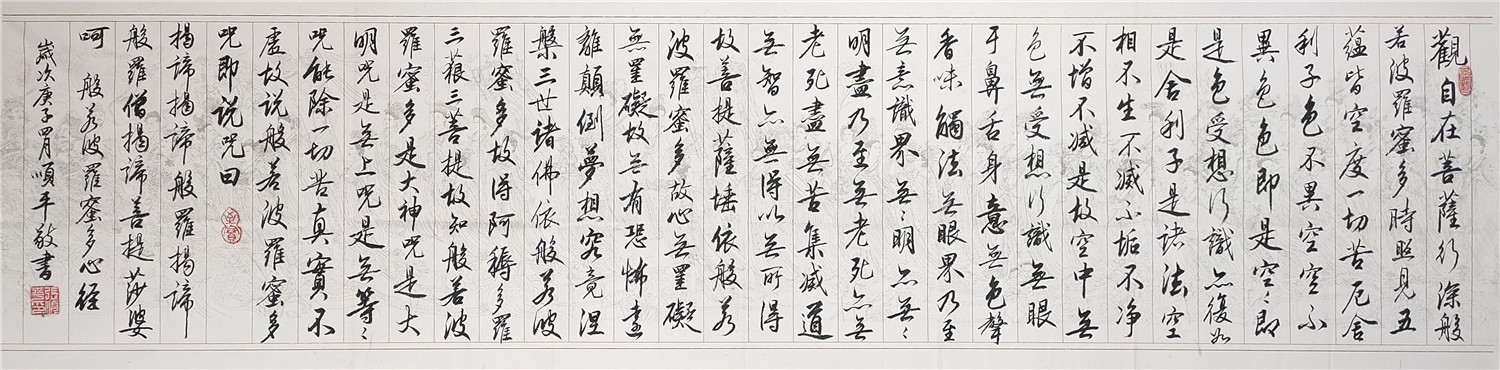 觀自在菩薩行深般
若波羅蜜多時照見五
蘊皆空度一切苦厄舍
利子色不異空空不
異色色即是空〻即
是色受想行識亦復如
是舍利子是諸法空
相不生不滅不垢不净
不增不减是故空中無
色無受想行識無眼
耳鼻舌身意無色聲
香味觸法無眼界乃至
无意識界無〻明亦無〻
明盡乃至無老死亦無
老死盡無苦集滅道
無智亦無得以無所得
故菩提薩埵依般若
波羅蜜多故心無罣礙
無罣礙故無有恐怖遠
離顛倒夢想究竟涅
槃三世諸佛依般若波
羅蜜多故得阿耨多羅
三藐三菩提故知般若波
羅蜜多是大神咒是大
明咒是無上咒是無等〻
咒能除一切苦真實不
虛故說般若波羅蜜多
咒即說咒曰
揭諦揭諦般羅揭諦
般羅僧揭諦菩提莎婆
呵 般若波羅蜜多心經
歲次庚子四月順平敬書